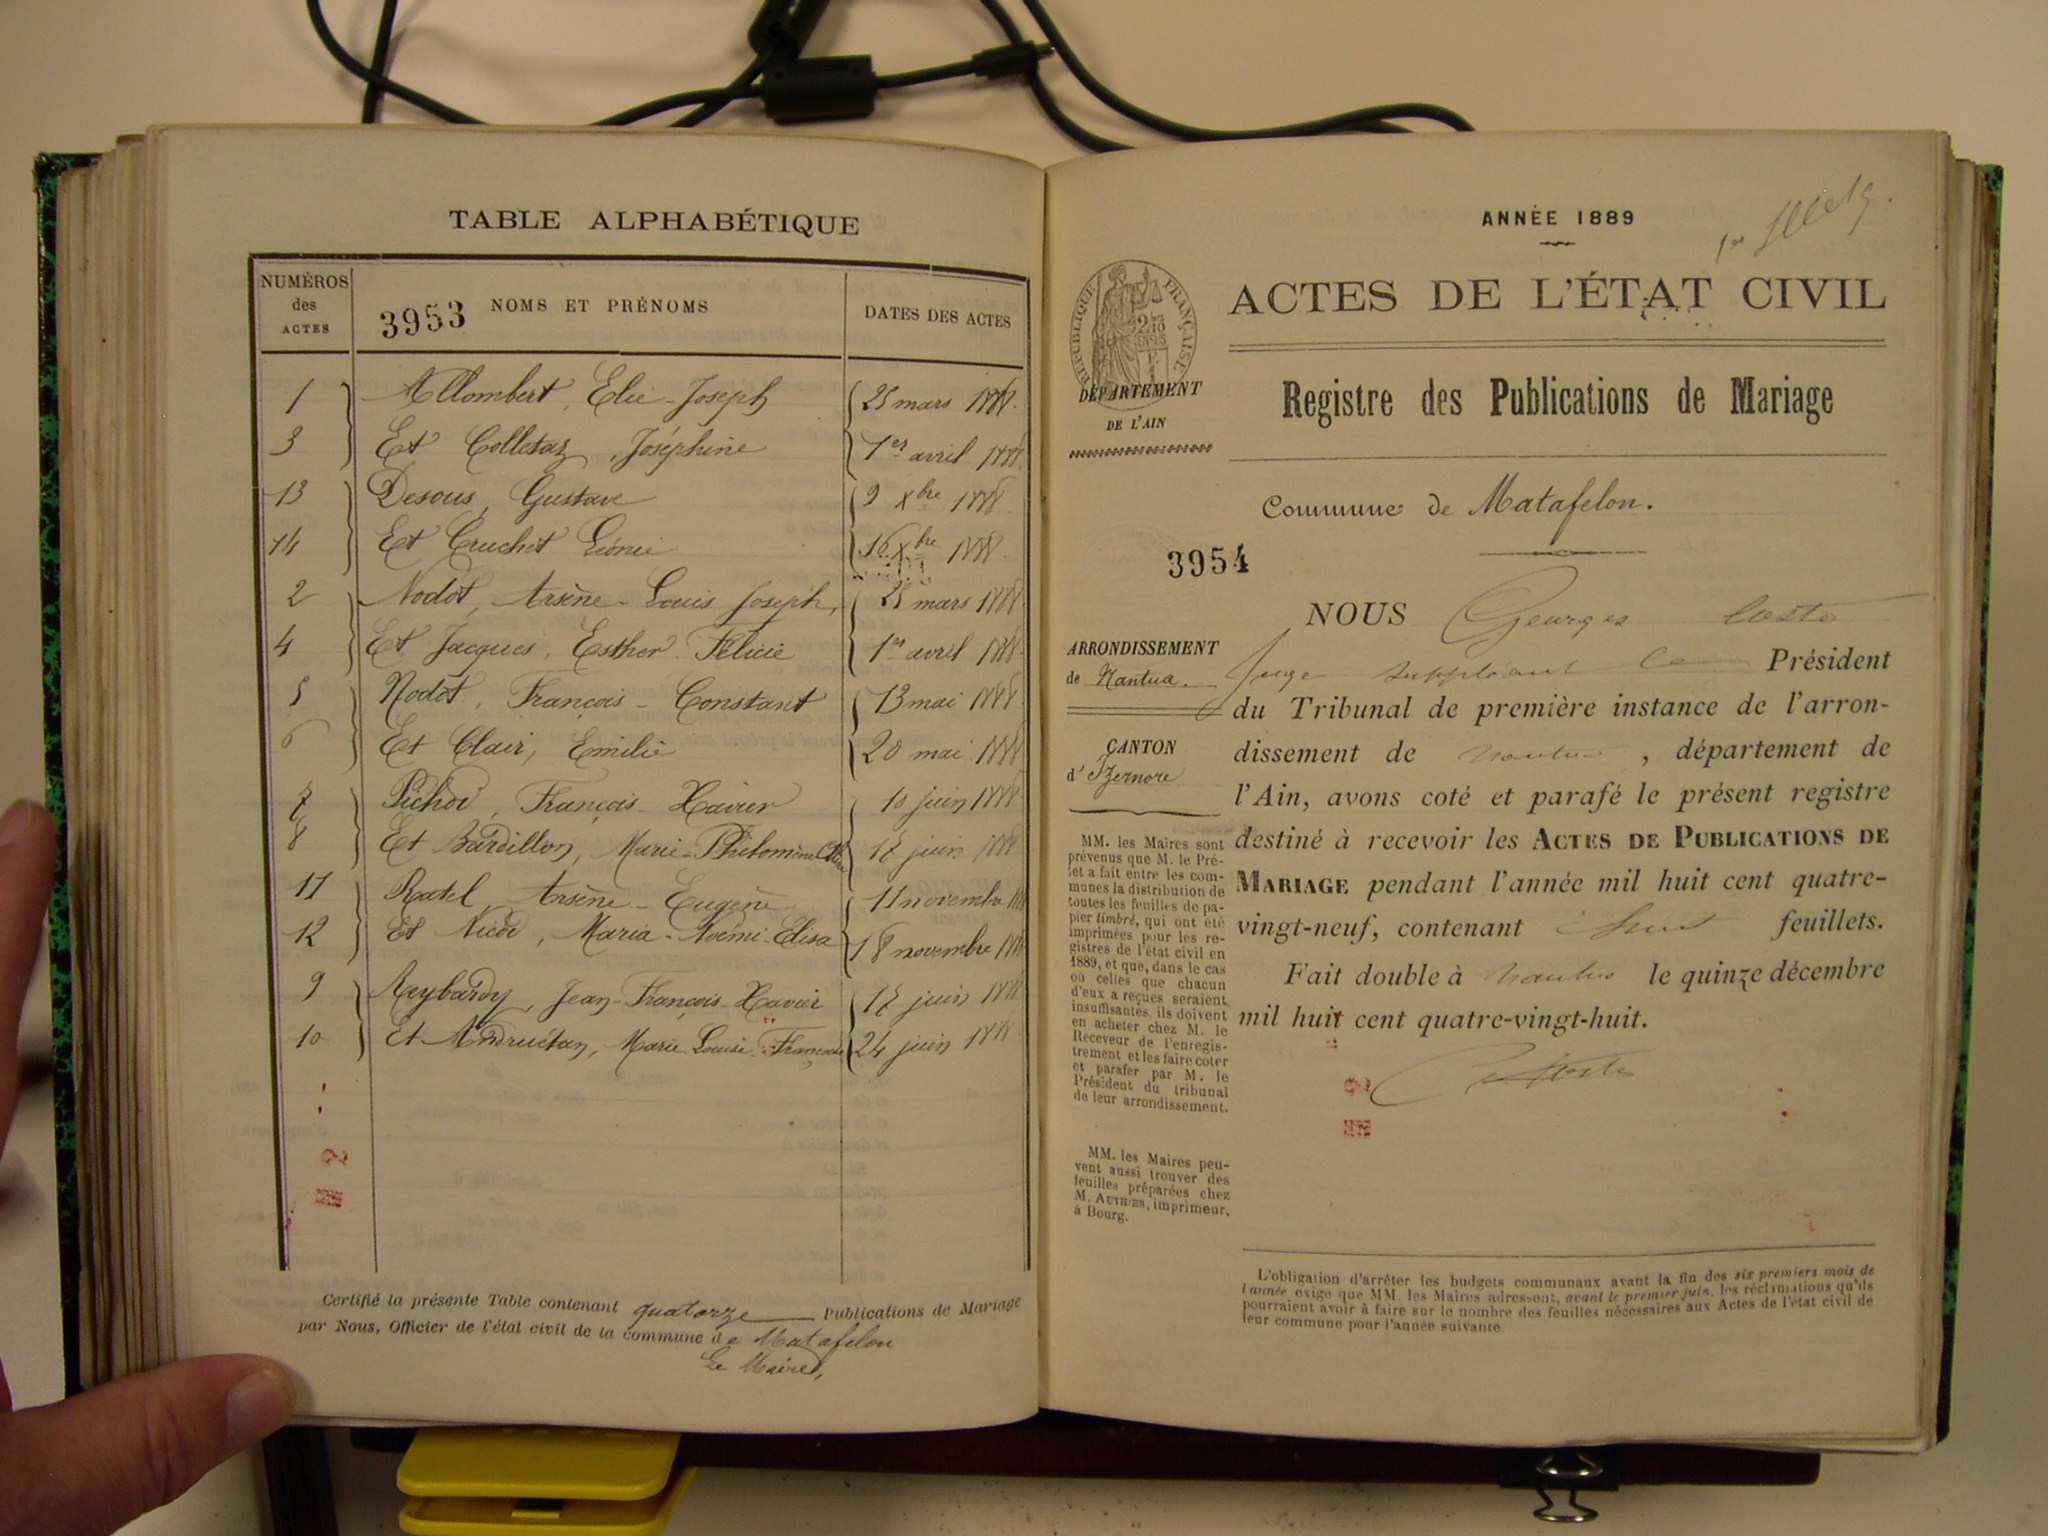 TABLE ALPHABÉTIQUE
NUMÉROS des ACTES
3953 NOMS ET PRÉNOMS
DATES DES ACTES
1 Allombert, Elie-Joseph 25 mars 1888.
3 Et Colletaz, Joséphine 1er avril 1888.
13 Desous, Gustave 9 Xbre 1888.
14 Et Cruchet Léonie 16 Xbre 1888.
2 Nodot, Arsène-Louis Joseph, 25 mars 1888
4 Et Jacques, Esther Félicie 1er avril 1888.
5 Nodot, François-Constant 13 mai 1888
6 Et Clair, Emilie 20 mai 1888
7 Pichod, François-Xavier 10 juin 1888
8 Et Bardillon, Marie-Philomène 17 juin 1888
11 Ratel, Arsène-Eugène 11 novembre 1888
12 Et Nicod, Maria-Noémi-Elisa 18 novembre 1888
9 Reybardy, Jean-François-Xavier 17 juin 1888
10 Et Andruétan, Marie Louise Françoise 24 juin 1888
Certifié la présente Table contenant quatorze Publications de Mariage
par Nous, Officier de l'état civil de la commune de Matafelon
Le Maire,
ANNÉE 1889
ACTES DE L'ÉTAT CIVIL
RÉPUBLIQUE FRANÇAISE
DÉPARTEMENT
DE L'AIN
Registre des Publications de Mariage
Commune de Matafelon.
3954
ARRONDISSEMENT
de Nantua.
CANTON
d'Izernore
MM. les Maires sont
prévenus que M. le Pré-
fet a fait entre les com-
munes la distribution de
toutes les feuilles de pa-
pier timbré, qui ont été
imprimées pour les re-
gistres de l'état civil en
1889, et que, dans le cas
où celles que chacun
d'eux a reçues seraient
insuffisantes, ils doivent
en acheter chez M. le
Receveur de l'enregis-
trement et les faire coter
et parafer par M. le
Président du tribunal
de leur arrondissement.
MM. les Maires peu-
vent aussi trouver des
feuilles préparées chez
M. AUTHIER, imprimeur,
à Bourg.
NOUS Georges Coste
Juge suppléant le Président
du Tribunal de première instance de l'arron-
dissement de Nantua, département de
l'Ain, avons coté et parafé le présent registre
destiné à recevoir les ACTES DE PUBLICATIONS DE
MARIAGE pendant l'année mil huit cent quatre-
vingt-neuf, contenant feuillets.
Fait double à Nantua le quinze décembre
mil huit cent quatre-vingt-huit.
L'obligation d'arrêter les budgets communaux avant la fin des six premiers mois de
l'année exige que MM. les Maires adressent, avant le premier juin, les réclamations qu'ils
pourraient avoir à faire sur le nombre des feuilles nécessaires aux Actes de l'état civil de
leur commune pour l'année suivante